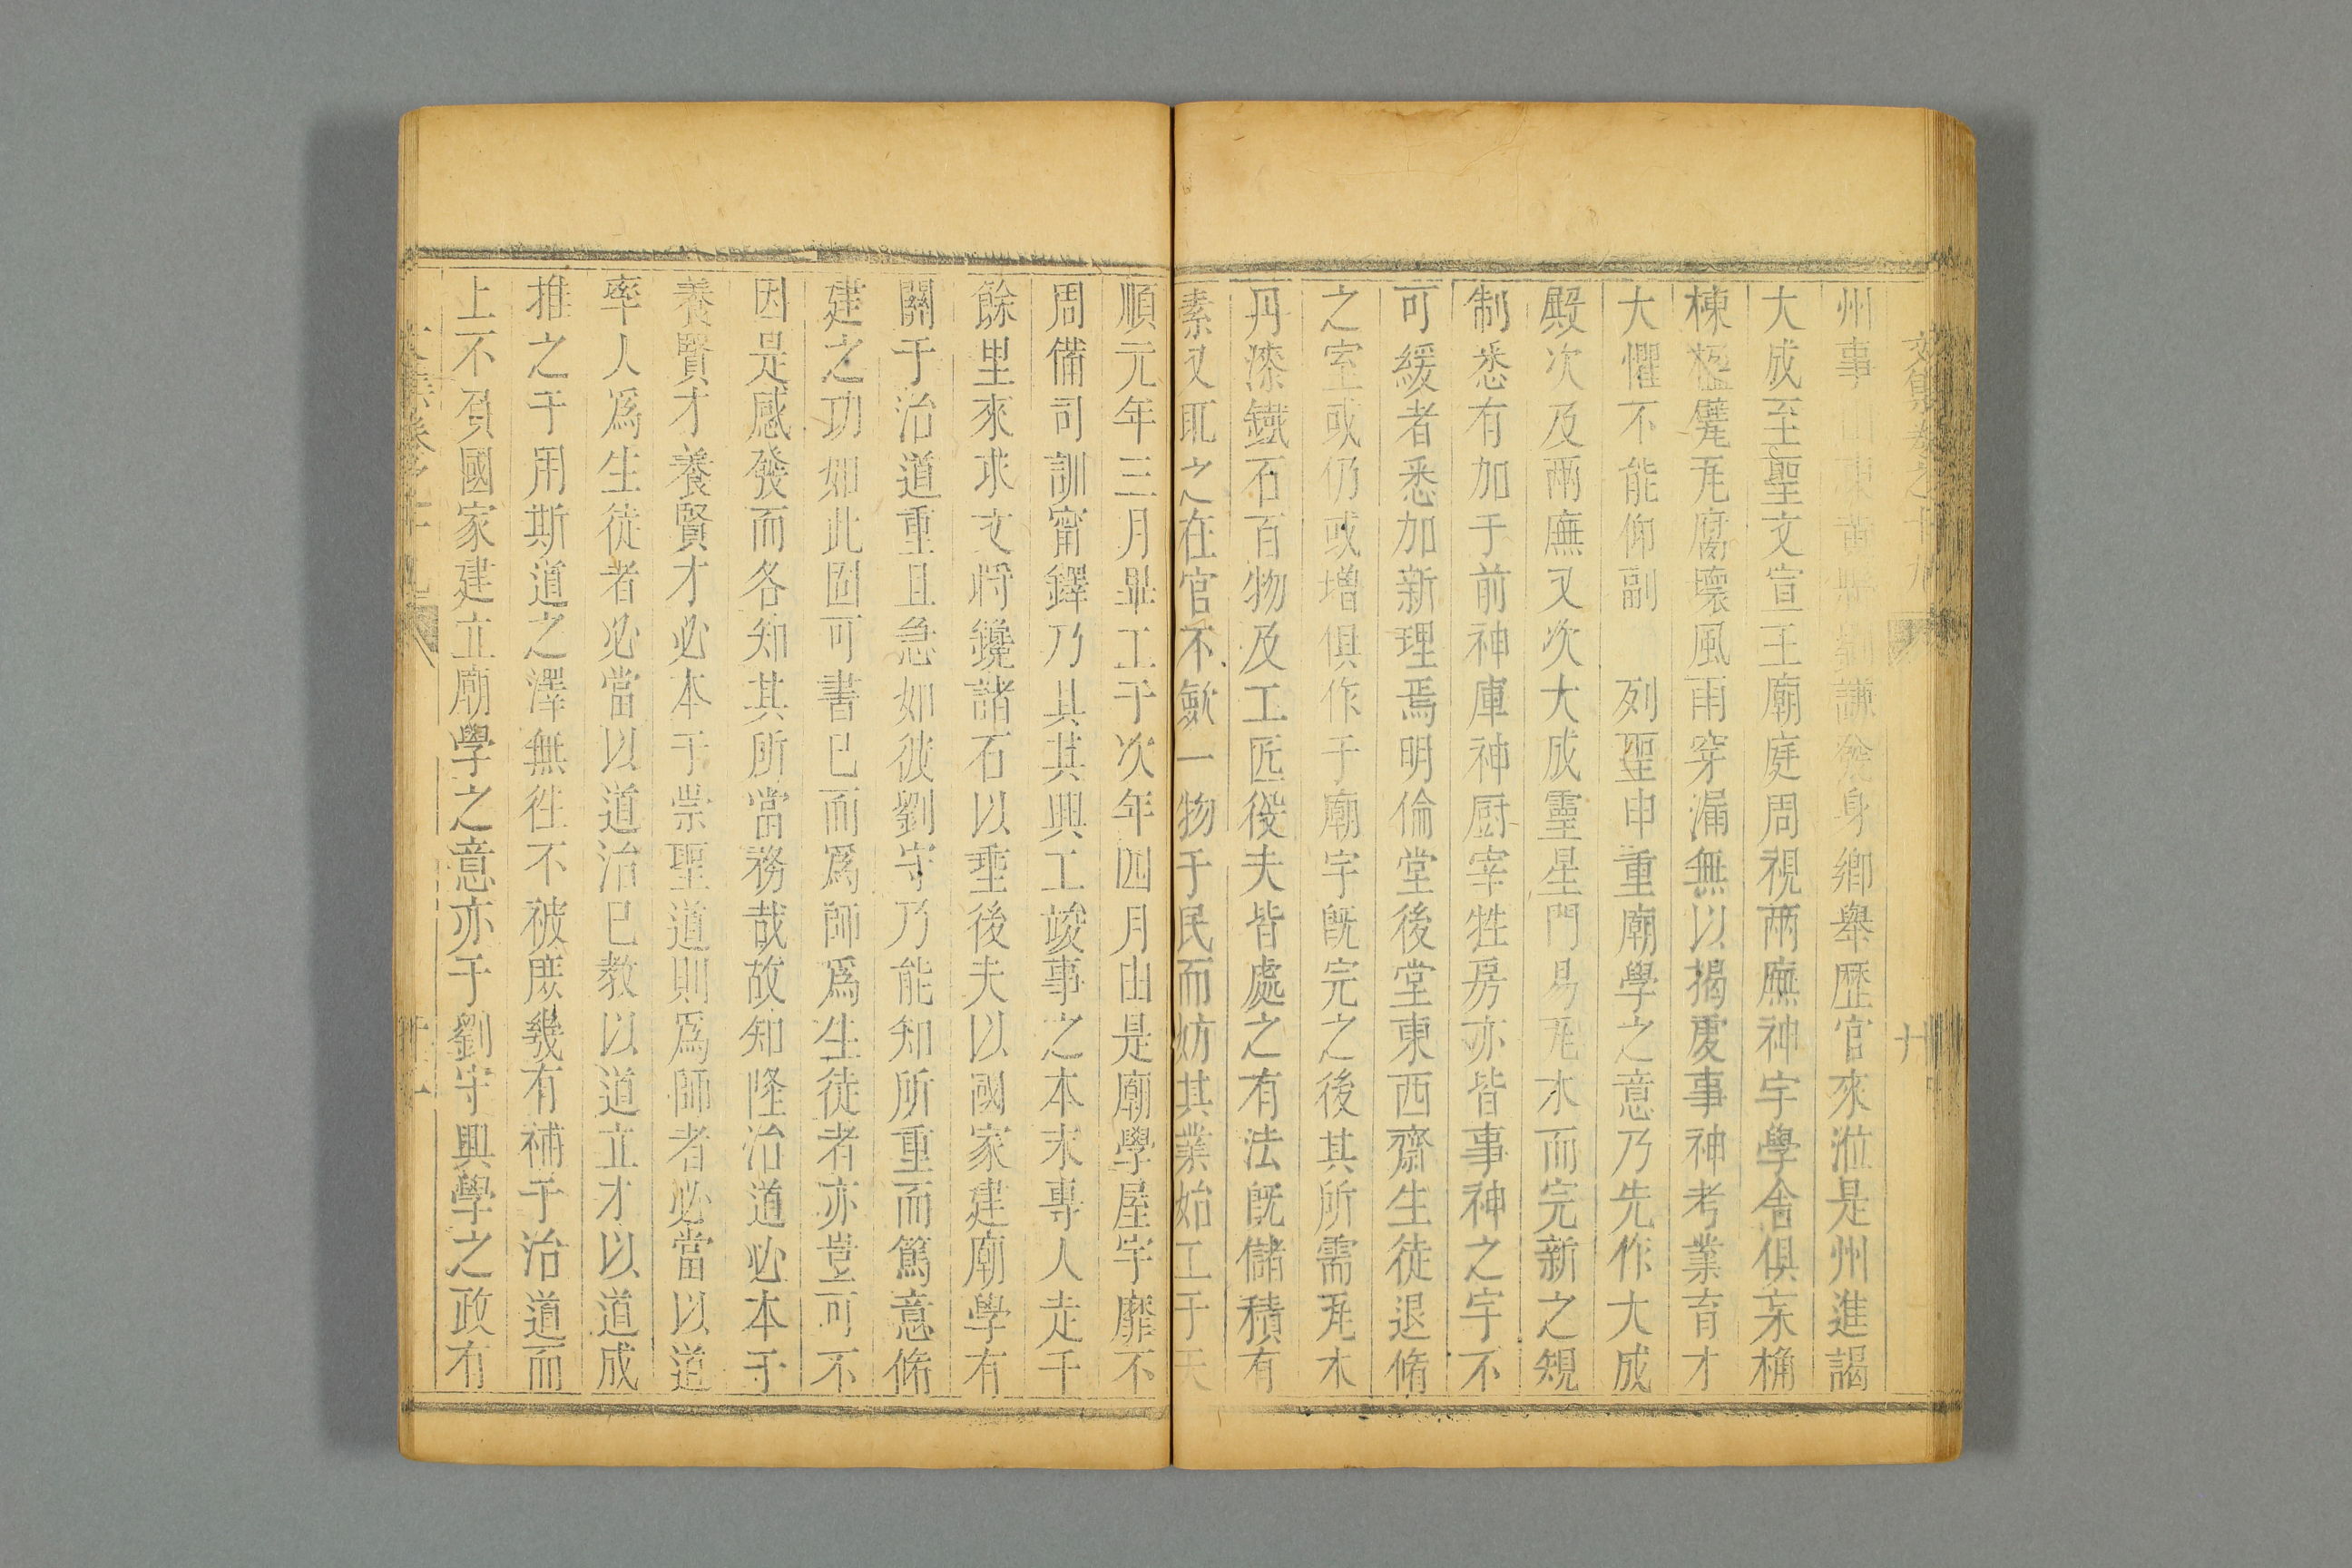 文集卷之十九
廿
州事山東黃縣劉謙發身鄉舉歷官來涖是州進謁
大成至聖文宣王廟庭周視兩廡神宇學舍俱朽桷
棟楹甓瓦腐壞風雨穿漏無以揭虔事神考業育才
大懼不能仰副　列聖申重廟學之意乃先作大成
殿次及兩廡又次大成靈星門易瓦木而完新之規
制悉有加于前神庫神厨宰牲房亦皆事神之宇不
可緩者悉加新理焉明倫堂後堂東西齋生徒退脩
之室或仍或增俱作于廟宇旣完之後其所需瓦木
丹漆鐵石百物及工匠役夫皆處之有法旣儲積有
素又取之在官不歛一物于民而妨其業始工于天
順元年三月畢工于次年四月由是廟學屋宇靡不
周備司訓甯鐸乃具其興工竣事之本末專人走千
餘里來求文將鑱諸石以垂後夫以國家建廟學有
關于治道重且急如彼劉守乃能知所重而篤意脩
建之功如此固可書已而爲師爲生徒者亦豈可不
因是感發而各知其所當務哉故知隆治道必本于
養賢才養賢才必本于崇聖道則爲師者必當以道
率人爲生徒者必當以道治已教以道立才以道成
推之于用斯道之澤無徃不被庶幾有補于治道而
上不負國家建立廟學之意亦于劉守興學之政有
文集卷之十九